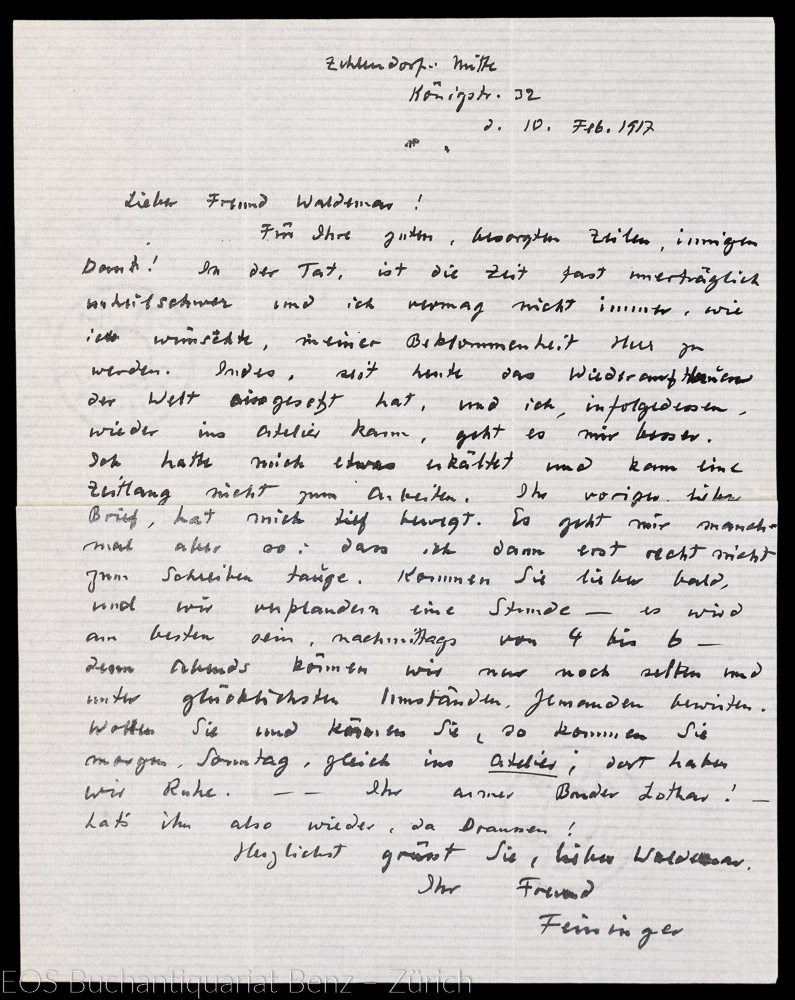 Zehlendorf-Mitte
Königstr. 32
d. 10. Feb. 1917
Lieber Freund Waldemar!
Für Ihre guten, besorgten Zeilen, innigen
Dank! In der Tat, ist die Zeit fast unerträglich
unheilschwer und ich vermag nicht immer, wie
ich wünschte, meiner Beklommenheit Herr zu
werden. Indes, seit heute das Wiederauftauen
der Welt eingesetzt hat, und ich, infolgedessen,
wieder ins Atelier kann, geht es mir besser.
Ich hatte mich etwas erkältet und kam eine
Zeitlang nicht zum Arbeiten. Ihr voriger lieber
Brief, hat mich tief bewegt. Es geht mir manch-
mal aber so: dass ich dann erst recht nicht
zum Schreiben tauge. Kommen Sie lieber bald,
und wir verplaudern eine Stunde — es wird
am besten sein, nachmittags von 4 bis 6 —
denn Abends können wir nur noch selten und
unter glücklichsten Umständen, Jemanden bewirten.
Wollen Sie und können Sie, so kommen Sie
morgen, Sonntag, gleich ins Atelier; dort haben
wir Ruhe. — — Ihr armer Bruder Lothar! —
hats ihn also wieder, da Draussen!
Herzlichst grüsst Sie, lieber Waldemar,
Ihr Freund
Feininger
EOS Buchantiquariat Benz – Zürich